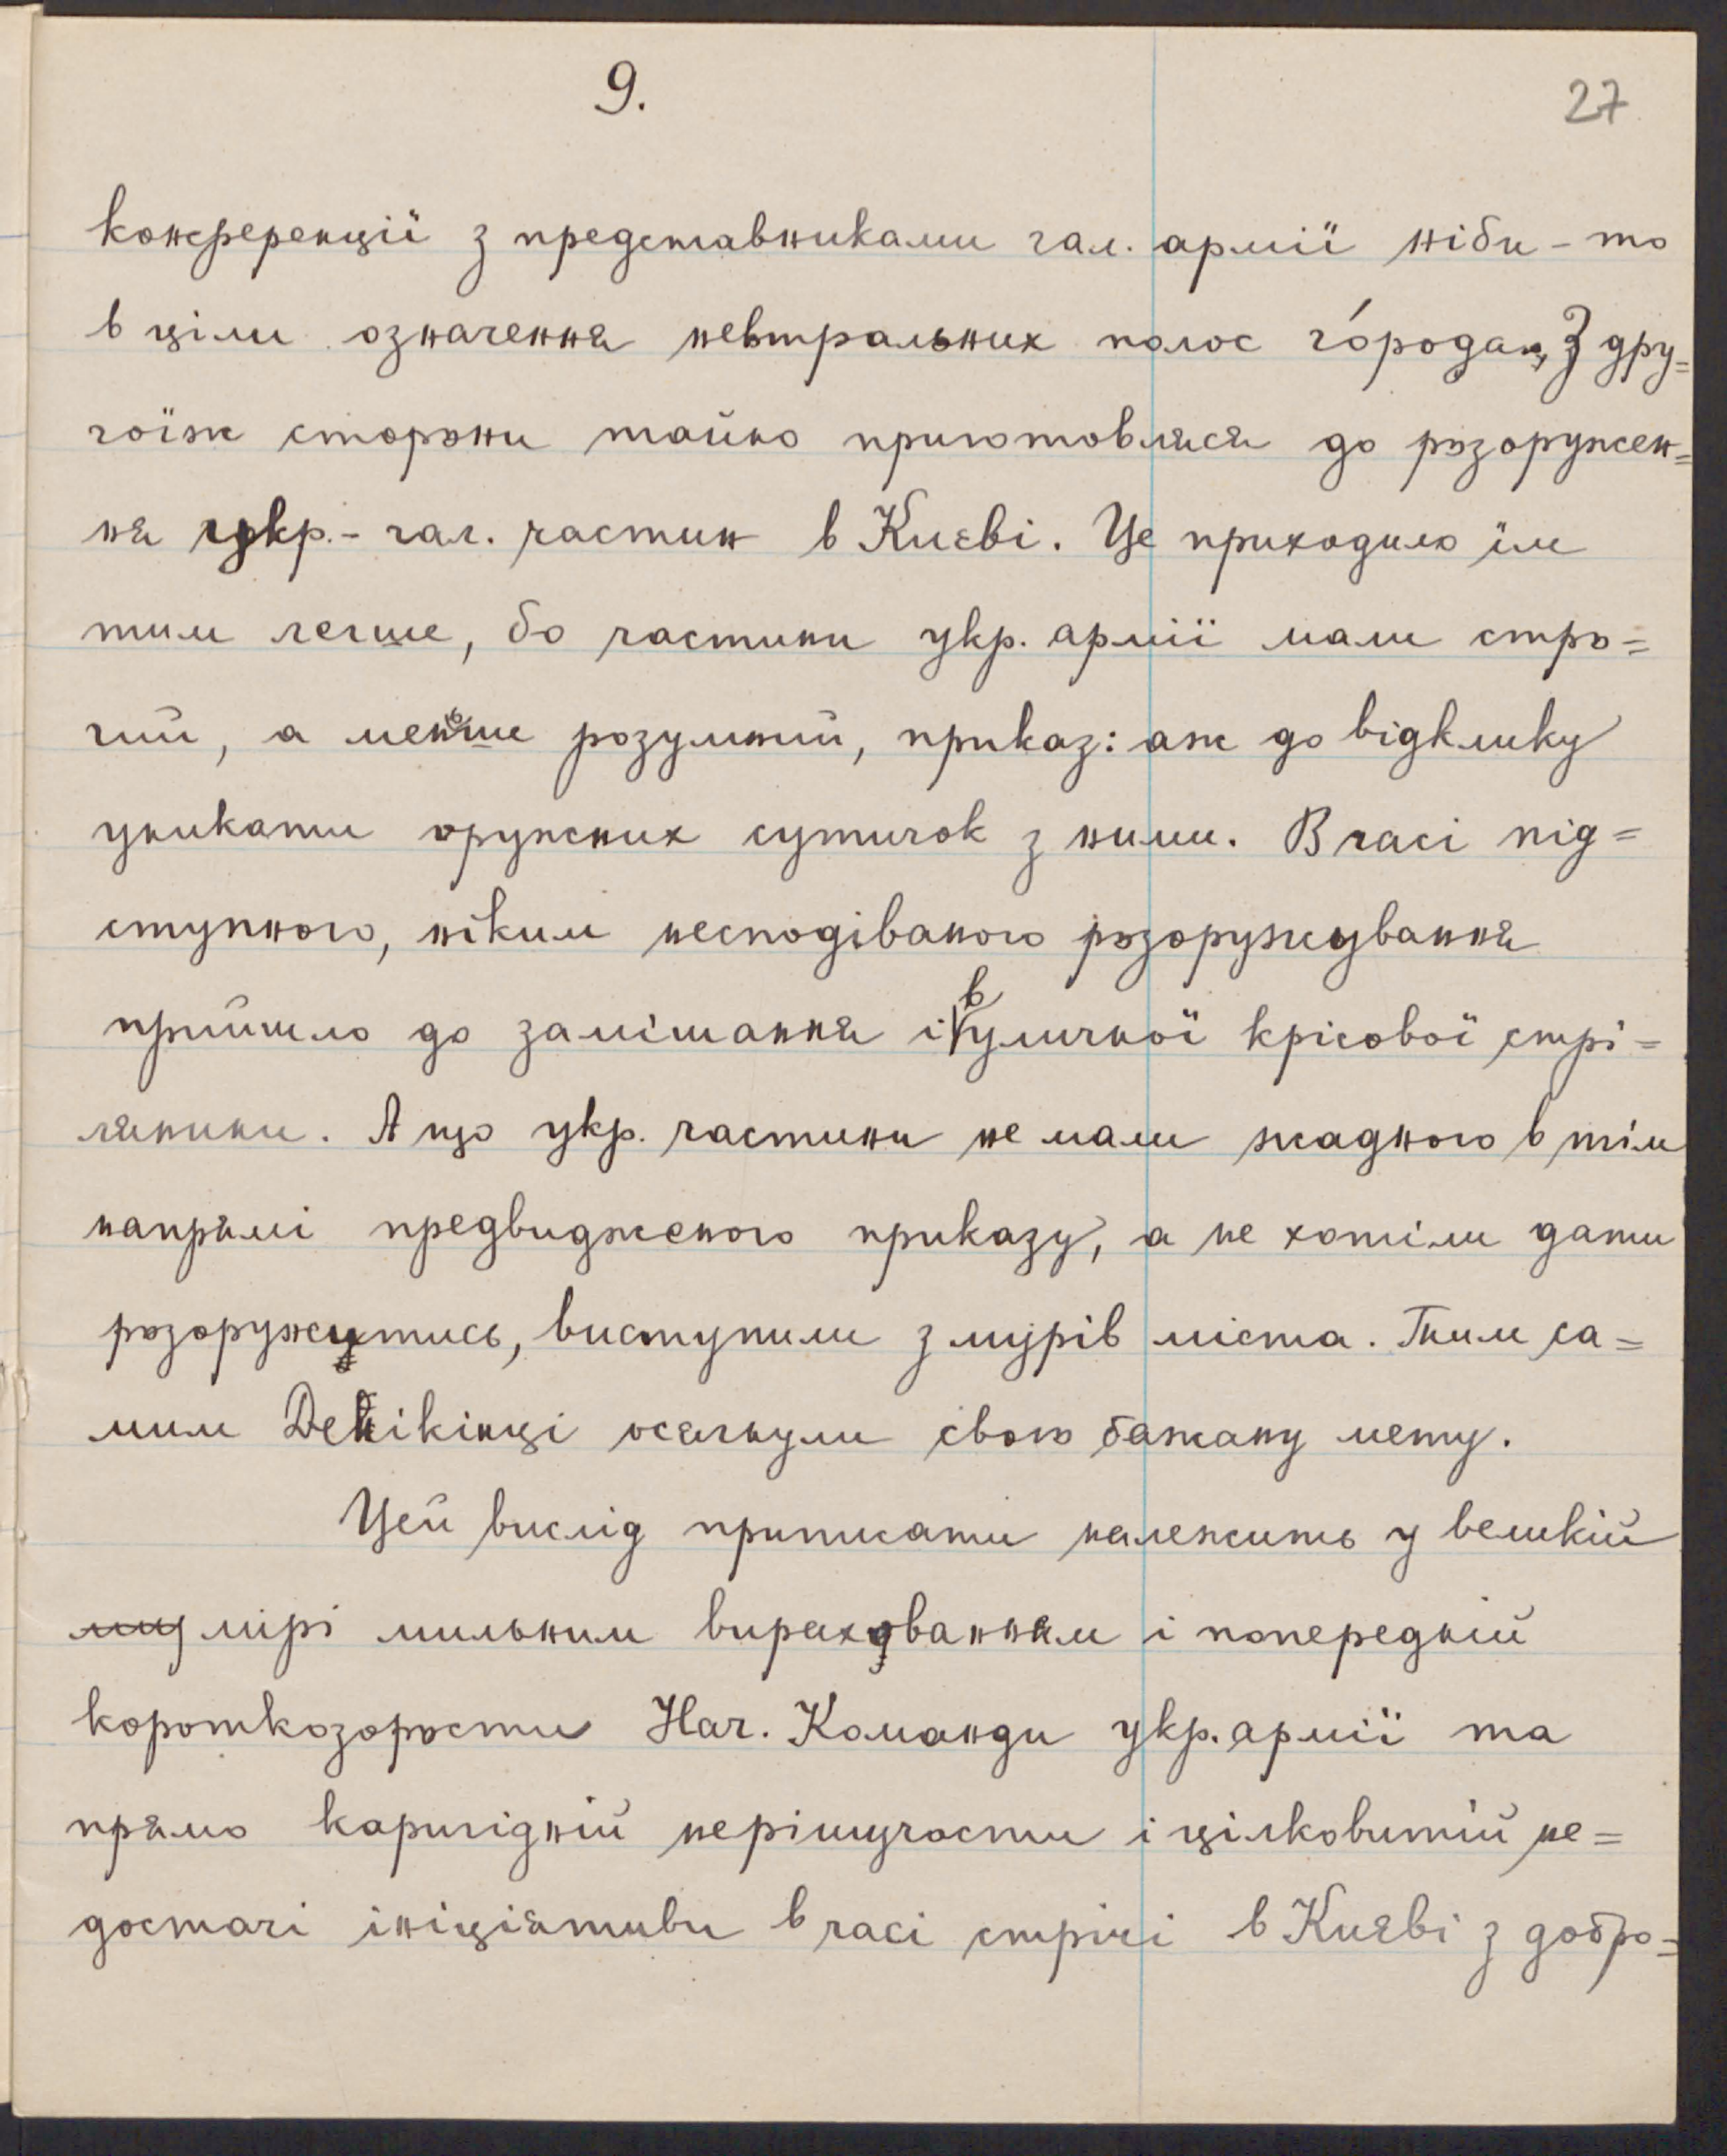 9.
27
конференції з представниками гал. армії ніби-то
в ціли означення невтральних полос го́рода, З дру=
гоїж сторони тайно приготовляся до розоружен=
ня укр.-гал. частин в Києві. Це приходило їм
тим легше, бо частини укр. армії мали стро=
гий, а меньше розумний, приказ: аж до відклику
уникати оружних сутичок з ними. В часі під=
ступного, ніким несподіваного розоружування
прийшло до замішання і в уличної крісової стрі=
лянини. А що укр. частини не мали жадного в тім
напрямі предвидженого приказу, а не хотіли дати
розоружутись, виступили з мурів міста. Тим са=
мим Денікінці осягнули свою бажану мету.
Цей вислід приписати належить у великій
мірі мильним вирахованням і попередній
короткозорости Нач. Команди укр. армії та
прямо каригідній нерішучости і цілковитій не=
достачі ініціятиви в часі стрічі в Києві з добро=